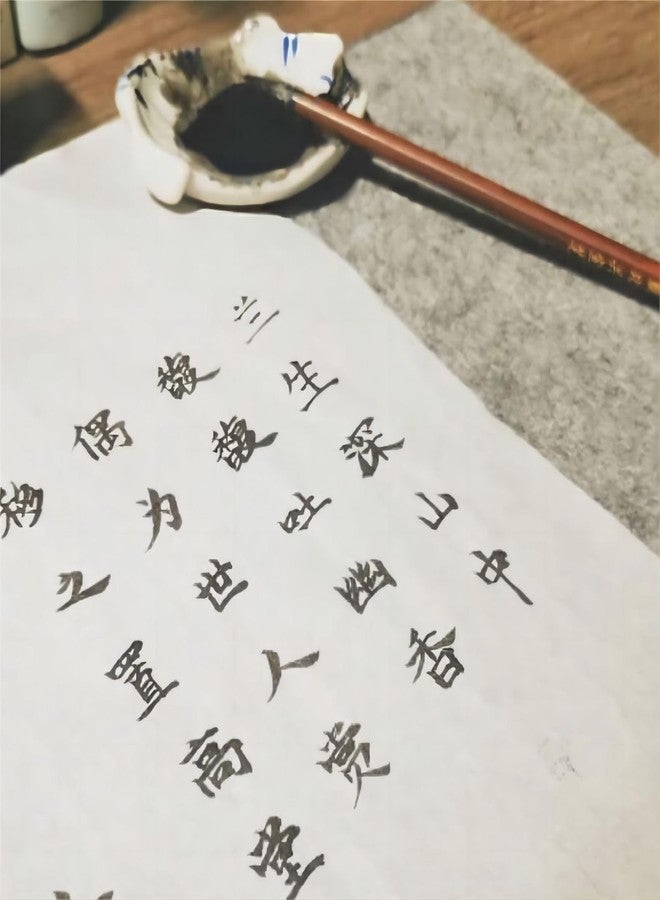 兰生深山中
馥馥吐幽香
偶为世人赏
移之置高堂